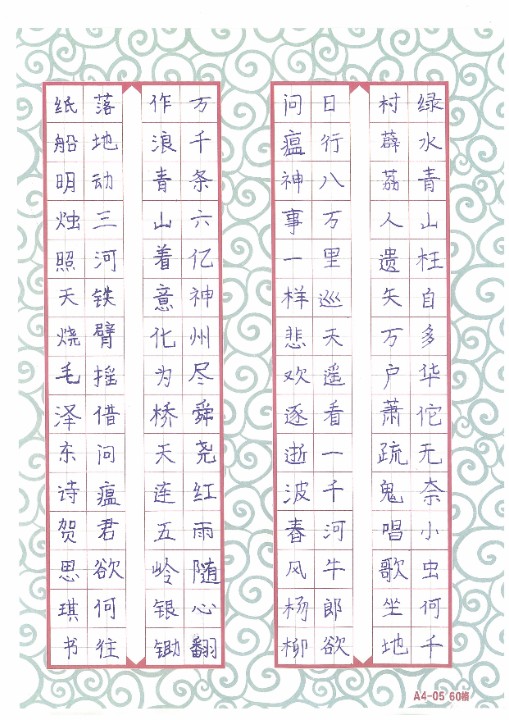 绿水青山枉自多华佗无奈小虫何千
村薜荔人遗矢万户萧疏鬼唱歌坐地
日行八万里巡天遥看一千河牛郎欲
问瘟神事一样悲欢逐逝波春风杨柳
万千条六亿神州尽舜尧红雨随心翻
作浪青山着意化为桥天连五岭银锄
落地动三河铁臂摇借问瘟君欲何往
纸船明烛照天烧毛泽东诗贺思琪书
A4-05 60格